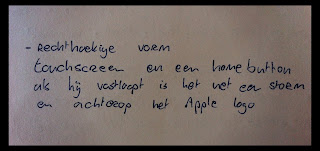 - Rechthoekige vorm
touchscreen en een homebutton
als hij vastloopt is het net een steen
en achterop het Apple logo